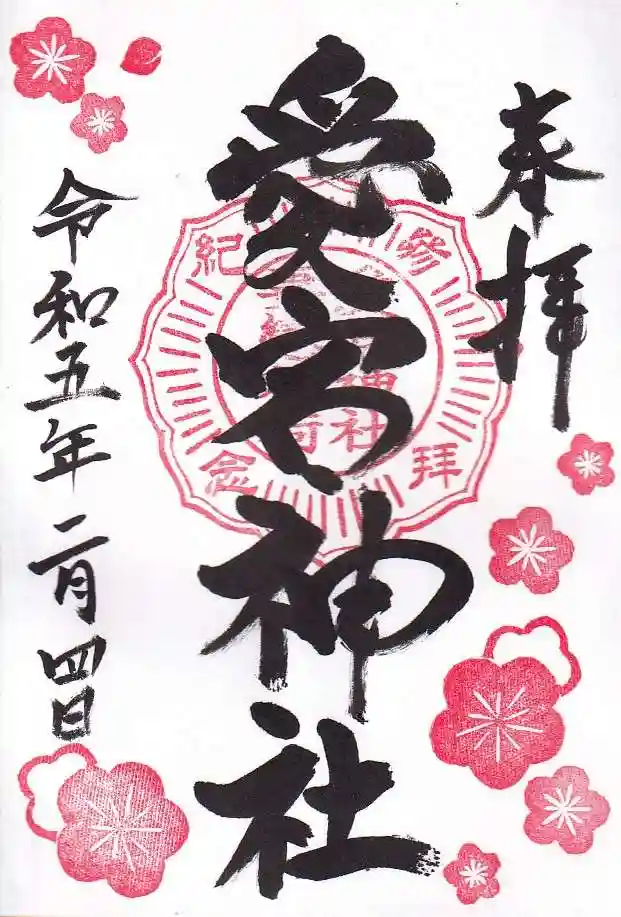 奉拝
愛宕神社
令和五年二月四日
參拝紀念
神社